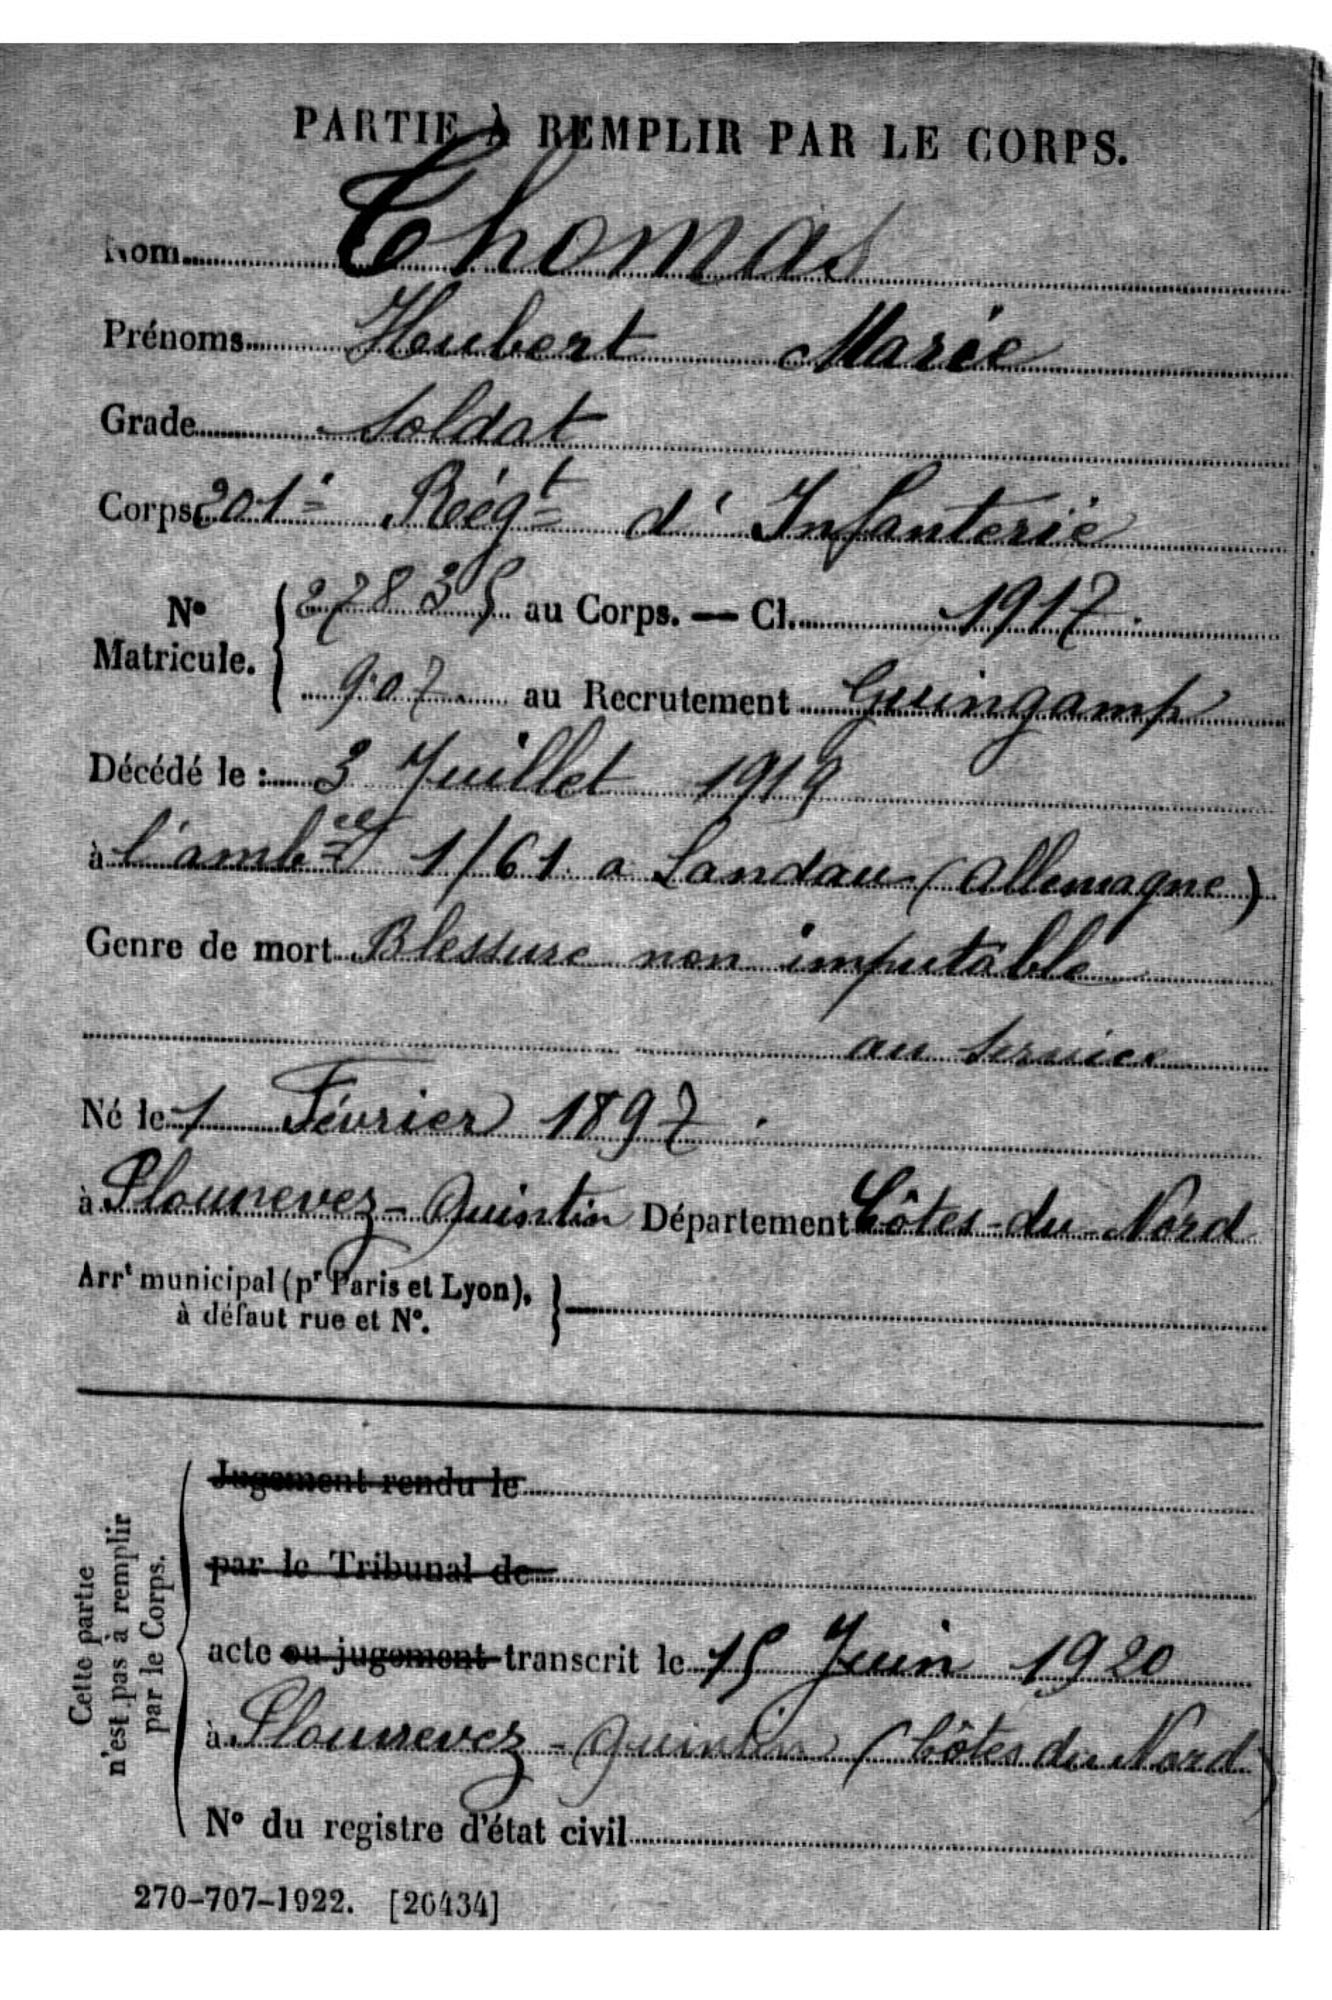 PARTIE À REMPLIR PAR LE CORPS.
Nom Thomas
Prénoms Hubert Marie
Grade Soldat
Corps 201e Régt d'Infanterie
No Matricule. { 27835 au Corps. — Cl. 1917.
907 au Recrutement Guingamp
Décédé le : 3 Juillet 1919
à l'ambce 1/61 a Landau (Allemagne)
Genre de mort Blessure non imputable
au service
Né le 1 Février 1897.
à Plounevez-Quintin Département Côtes-du-Nord
Arrt municipal (pr Paris et Lyon),
à défaut rue et No. } —
Cette partie
n'est pas à remplir
par le Corps.
Jugement rendu le
par le Tribunal de
acte ou jugement transcrit le 15 Juin 1920
à Plounevez-Quintin (Côtes du Nord)
No du registre d'état civil
270-707-1922. [26434]